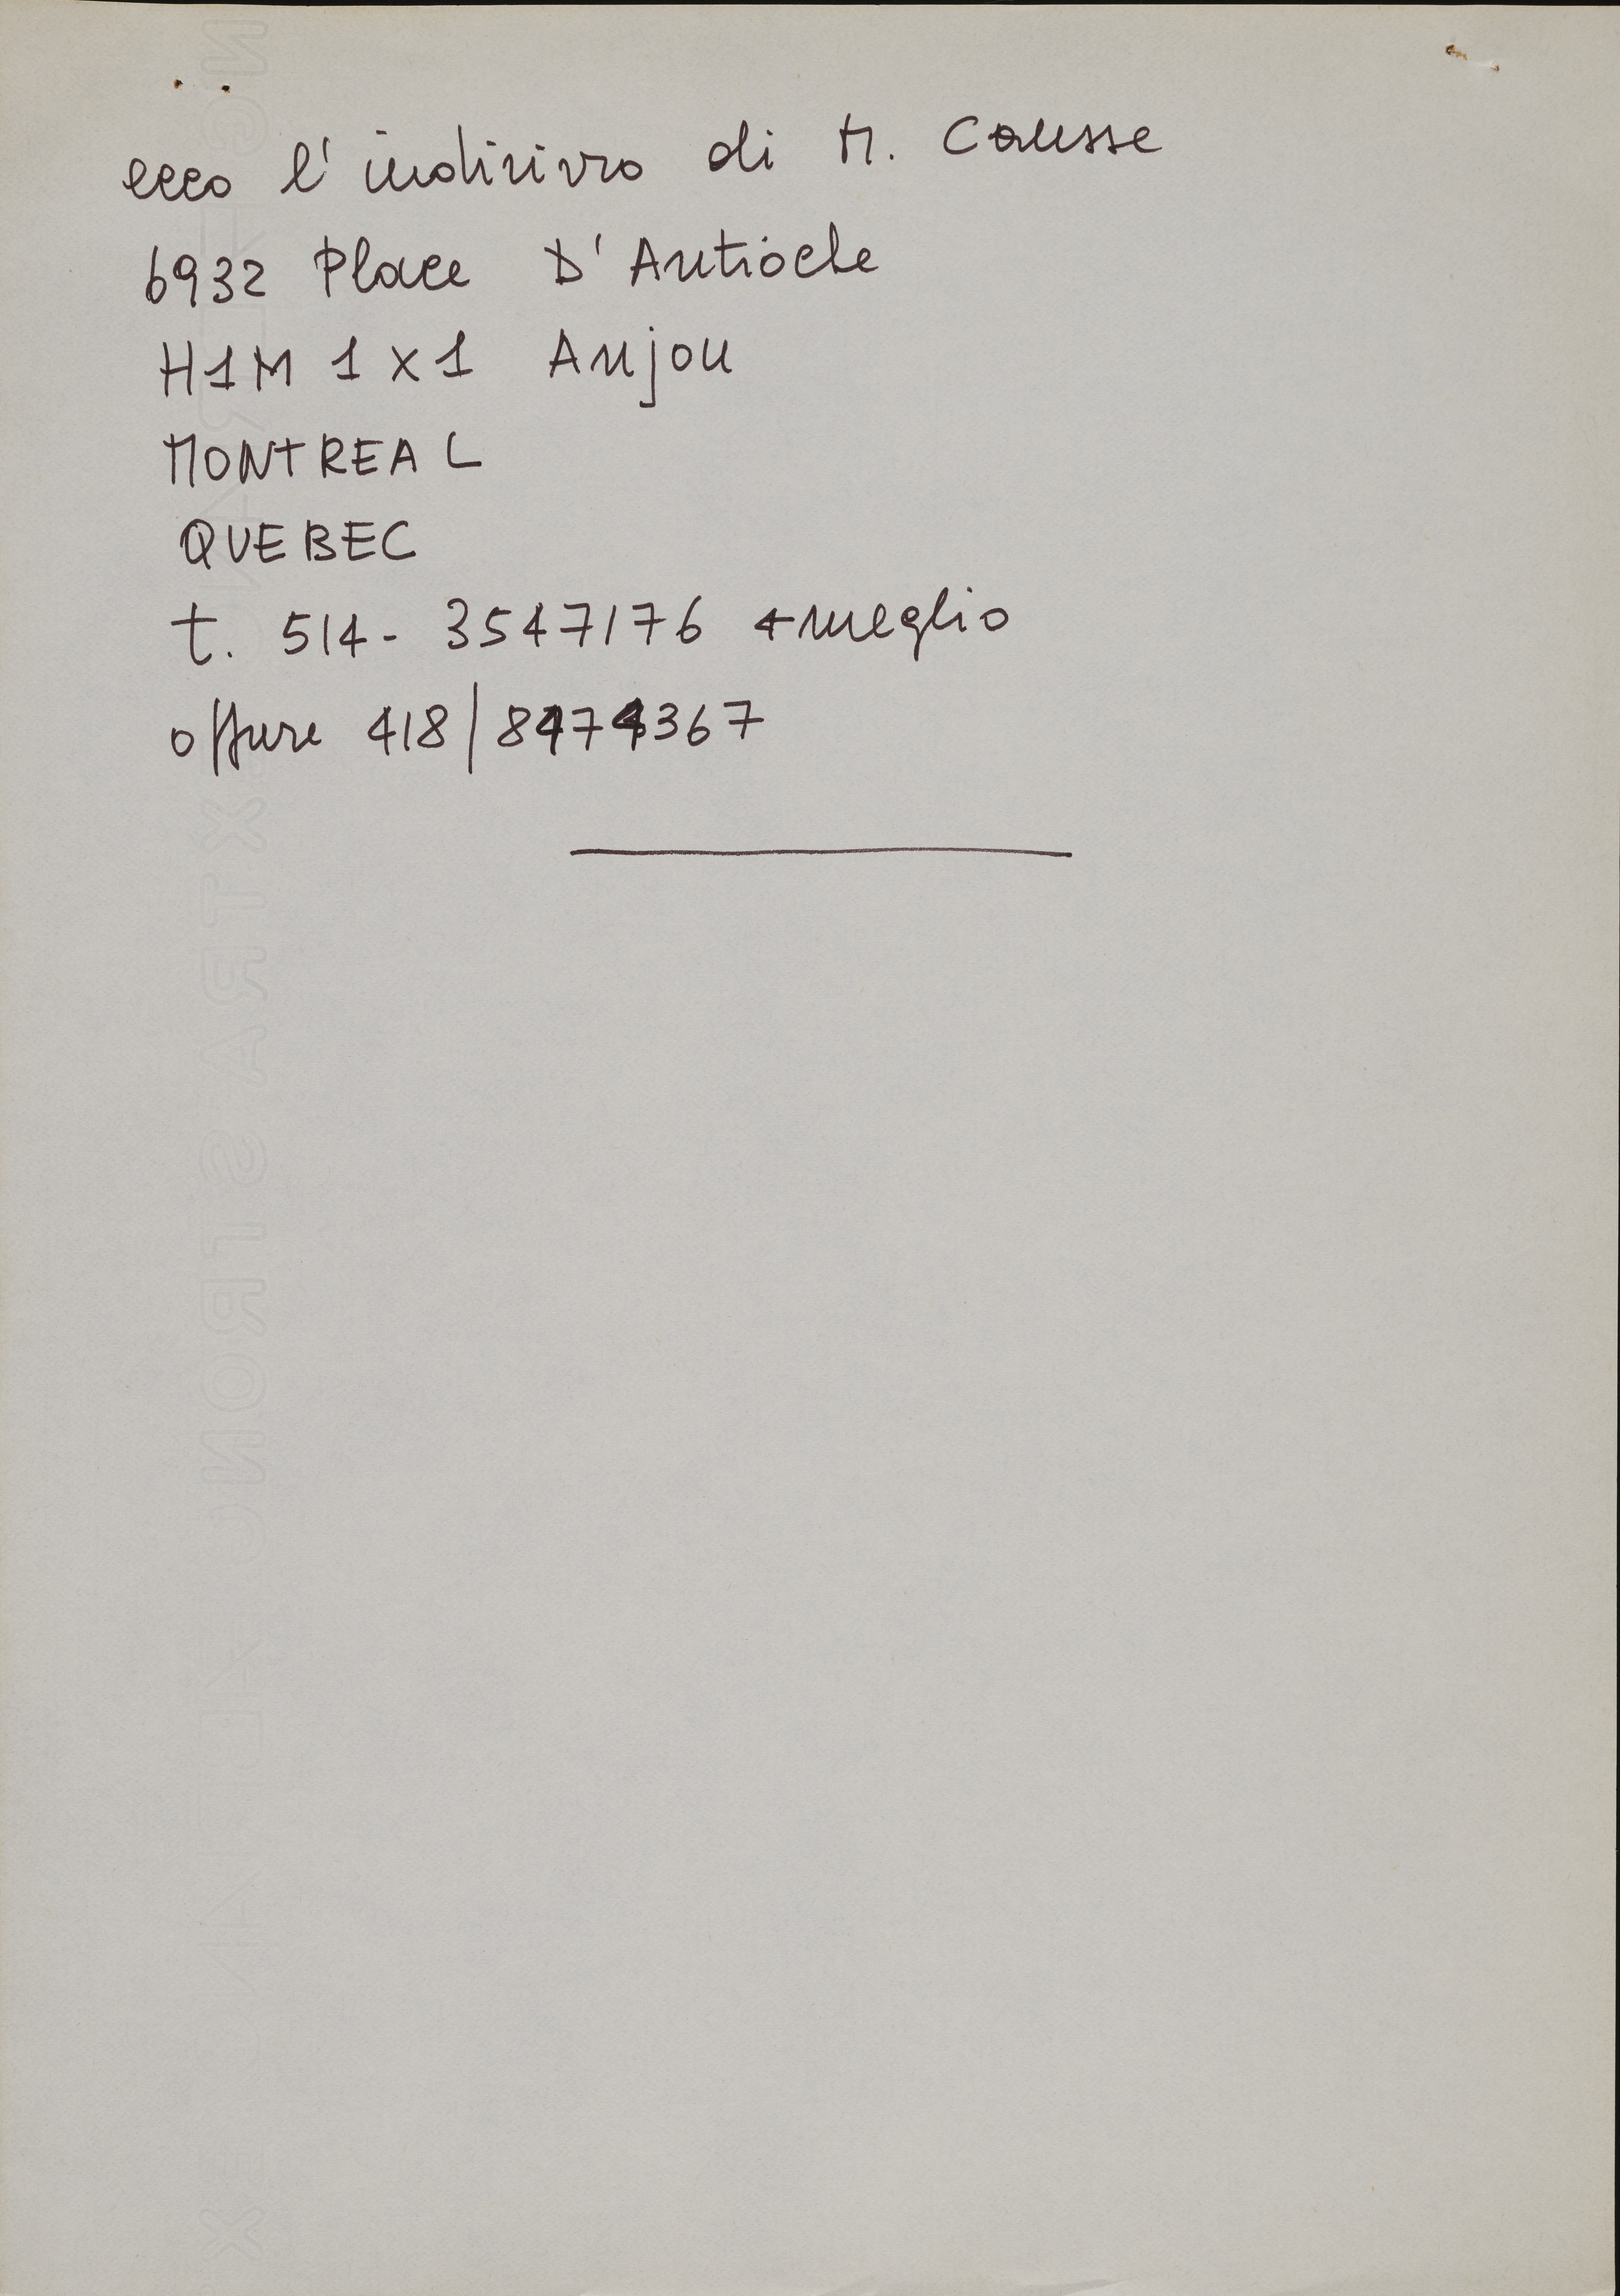 ecco l'indirizzo di M. Causse
6932 Place D'Antioche
H1M 1X1 Anjou
MONTREAL
QUEBEC
t. 514- 3547176 ← meglio
oppure 418/8474367